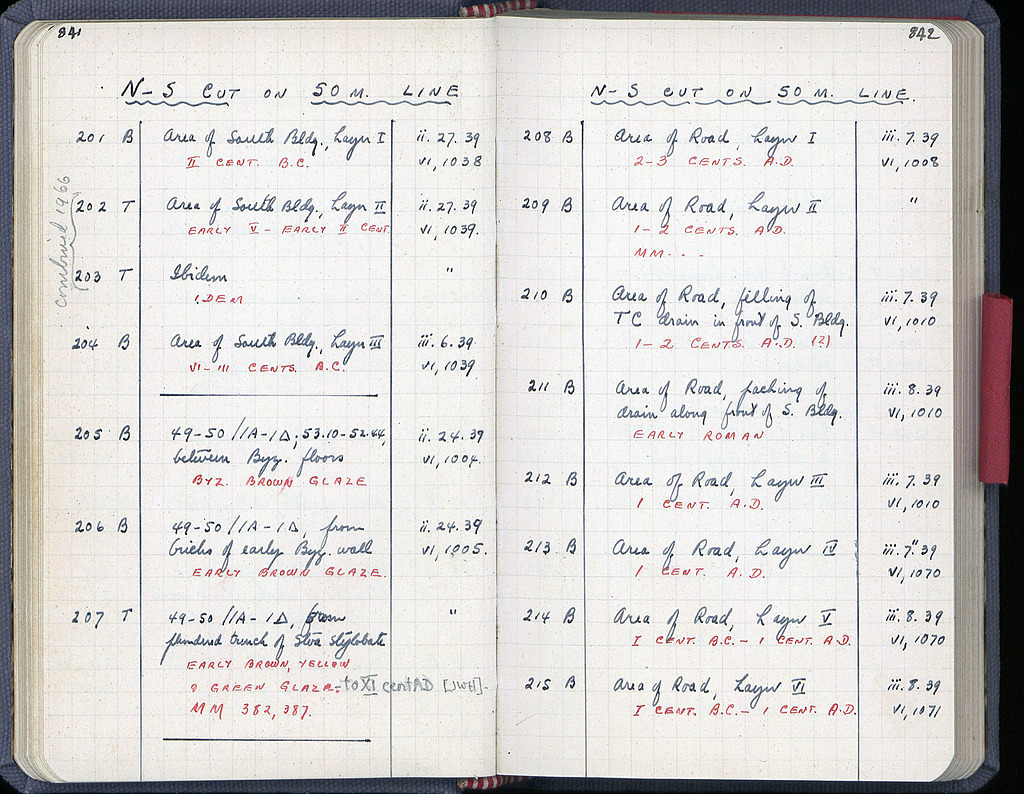 841
N-S CUT ON 50 M. LINE
combined 1966
201 B Area of South Bldg., Layer I ii.27.39
II CENT. B.C. VI, 1038
202 T Area of South Bldg., Layer II ii.27.39
EARLY V - EARLY II CENT. VI, 1039.
203 T Ibidem "
IDEM
204 B Area of South Bldg., Layer III iii.6.39
VI-III CENTS. B.C. VI, 1039
205 B 49-50/IA-IΔ; 53.10-52.44, ii.24.39
between Byz. floors VI, 1004.
BYZ. BROWN GLAZE
206 B 49-50/IA-IΔ, from ii.24.39
bricks of early Byz. wall VI, 1005.
EARLY BROWN GLAZE.
207 T 49-50/IA-IΔ, from "
plundered trench of Stoa Stylobate
EARLY BROWN, YELLOW
? GREEN GLAZE. - to XI cent AD [JWH].
MM 382, 387.
842
N-S CUT ON 50 M. LINE.
208 B Area of Road, Layer I iii.7.39
2-3 CENTS. A.D. VI, 1008
209 B Area of Road, Layer II "
1-2 CENTS. A.D.
MM. . .
210 B Area of Road, filling of iii.7.39
TC drain in front of S. Bldg. VI, 1010
1-2 CENTS. A.D. (?)
211 B Area of Road, packing of iii.8.39
drain along front of S. Bldg. VI, 1010
EARLY ROMAN
212 B Area of Road, Layer III iii.7.39
1 CENT. A.D. VI, 1010
213 B Area of Road, Layer IV iii.7."39
1 CENT. A.D. VI, 1070
214 B Area of Road, Layer V iii.8.39
I CENT. B.C. - 1 CENT. A.D. VI, 1070
215 B Area of Road, Layer VI iii.8.39
I CENT. B.C. - 1 CENT. A.D. VI, 1071